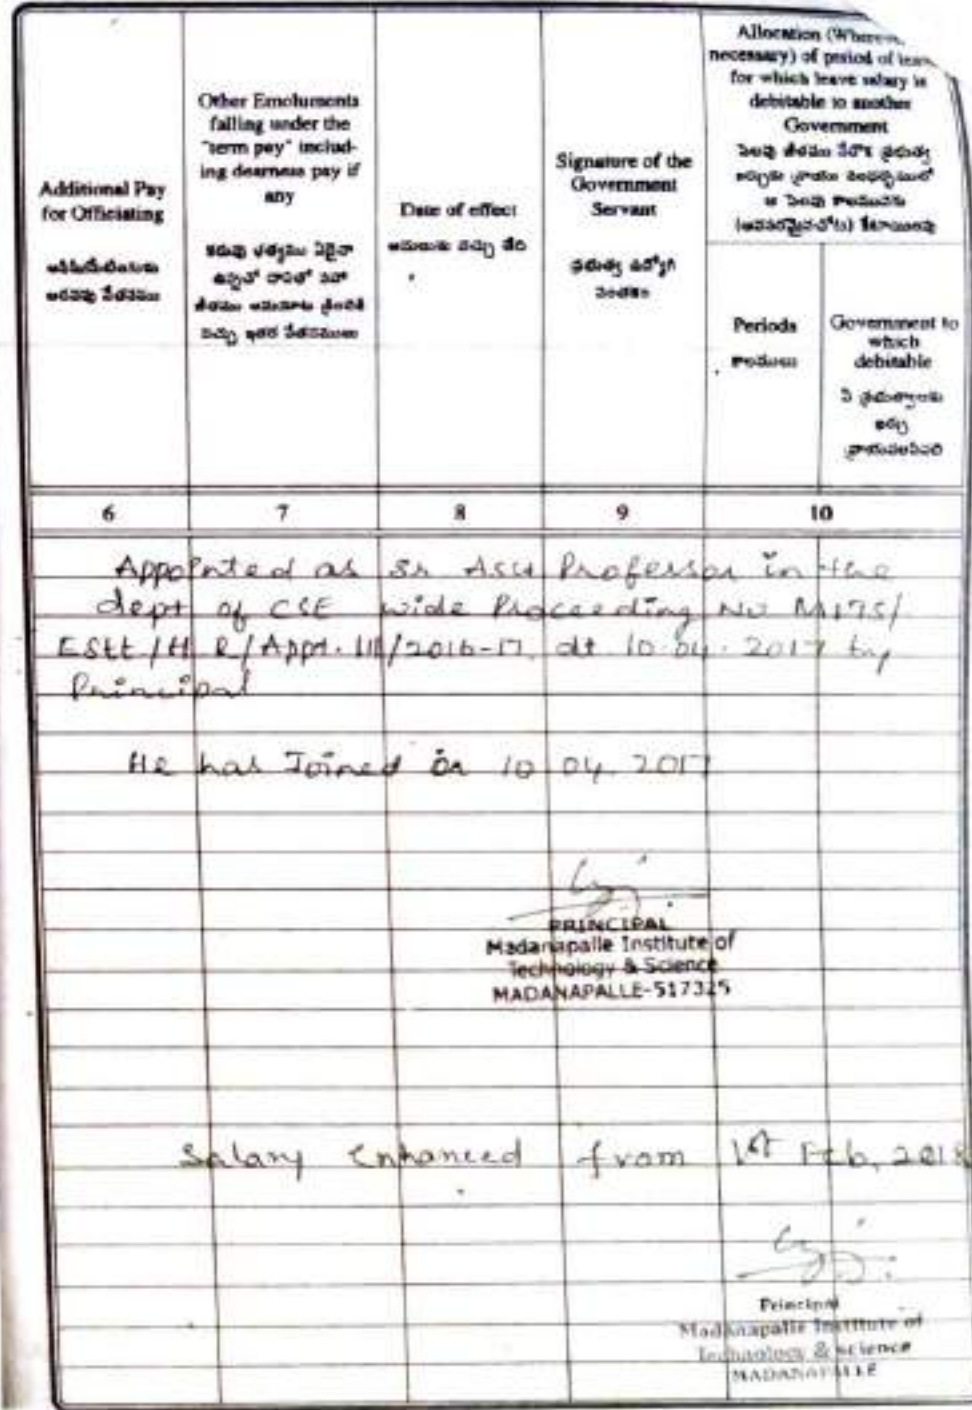 Additional Pay
for Officiating
Other Emoluments
falling under the
"term pay" includ-
ing dearness pay if
any
Date of effect
అమలుకు వచ్చు తేది
Signature of the
Government
Servant
ప్రభుత్వ ఉద్యోగి
సంతకం
Allocation (Where
necessary) of period of leave
for which leave salary is
debitable to another
Government
Periods
కాలములు
Government to
which
debitable
ఏ ప్రభుత్వాలకు
ఖర్చు
వ్రాయవలసినది
6 7 8 9 10
Appointed as Sr Asst Professor in the
dept of CSE wide Proceeding No M175/
Estt/H R/Appt. III/2016-17 dt 10.04.2017 by
Principal
He has Joined on 10 04. 2017
PRINCIPAL
Madanapalle Institute of
Technology & Science
MADANAPALLE-517325
Salary Enhanced from 1st Feb, 2018
Principal
Madanapalle Institute of
Technology & science
MADANAPALLE